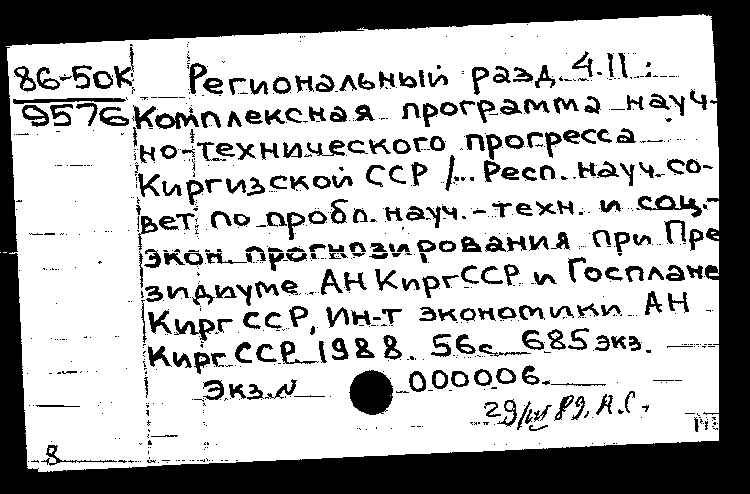 86-50К
9576
Региональный разд. 4.11:
Комплексная программа науч-
но-технического прогресса
Киргизской ССР /... Респ. науч. со-
вет по пробл. науч.-техн. и соц.-
экон. прогнозирования при Пре
зидиуме АН КиргССР и Госплане
Кирг ССР, Ин-т экономики АН
Кирг ССР 1988. 56с 685 экз.
Экз. N 000006.
29/VII 89, А.С.
8